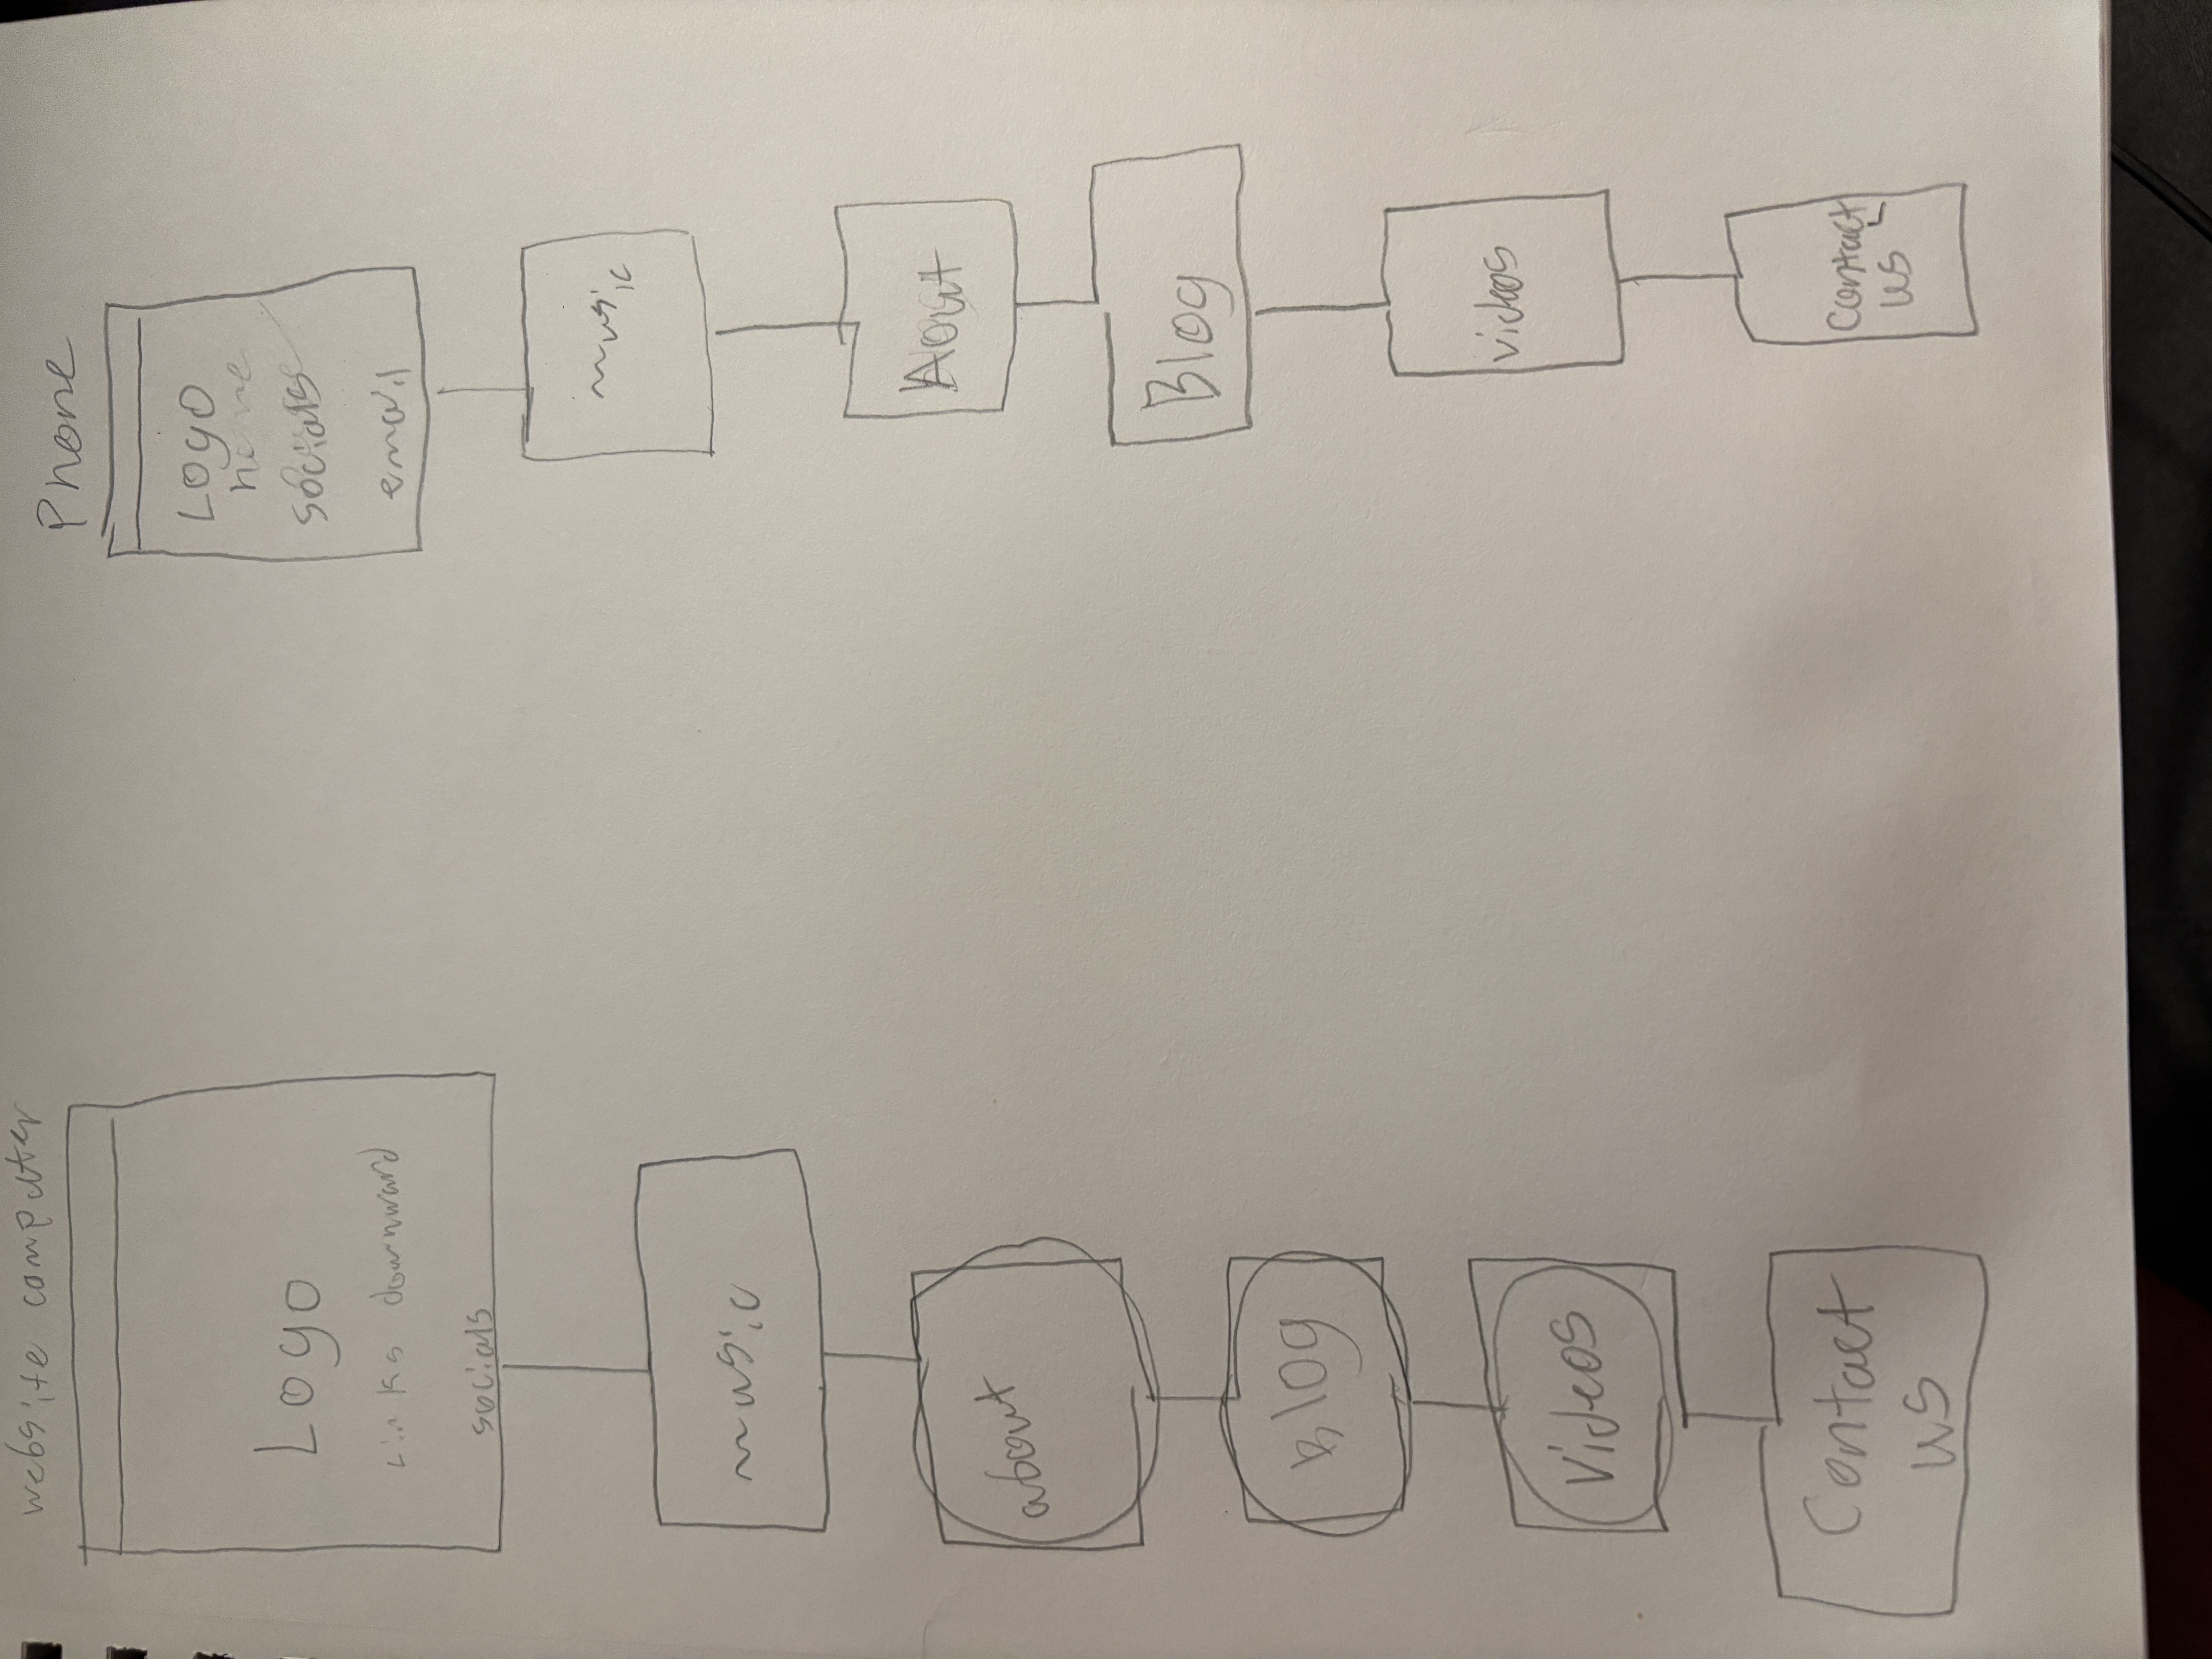 website computer
Logo
Links downward
socials
music
about
Blog
Videos
Contact
us
Phone
Logo
home
socials
email
music
Aout
Blog
videos
Contact
us